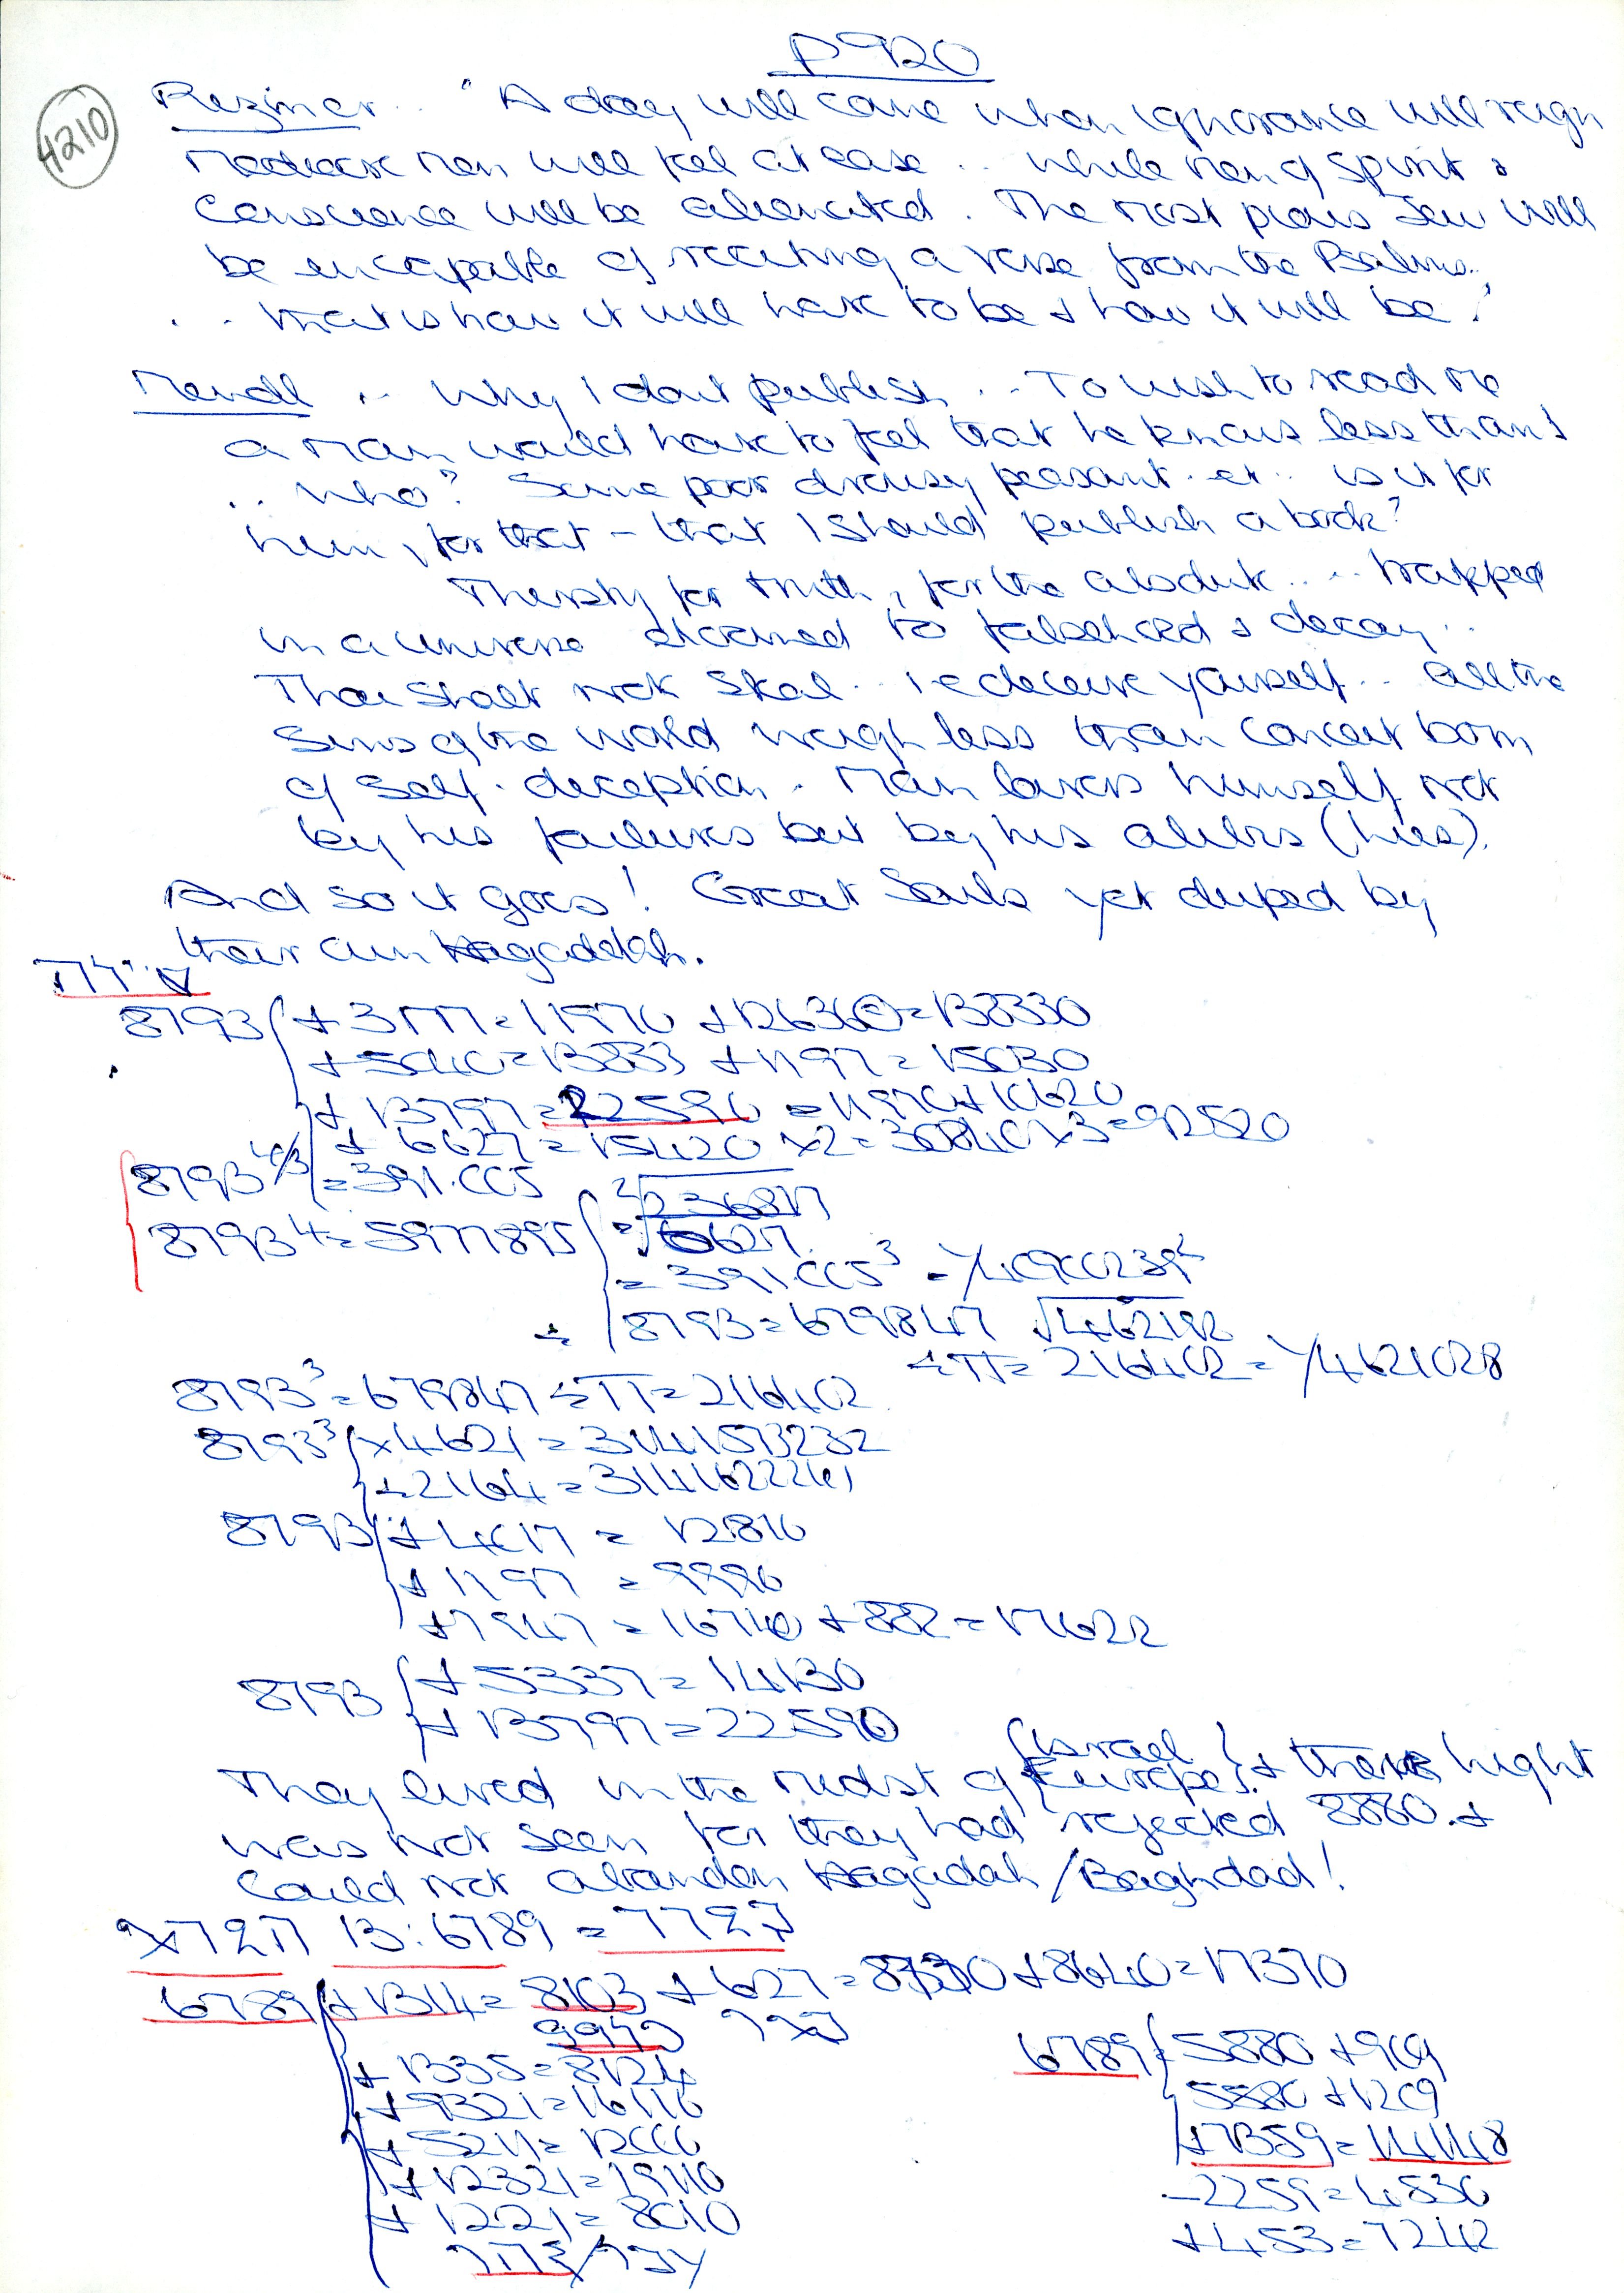 P920
4210
Riziner .. "A day will come when ignorance will reign
Mediocre men will feel at ease .. while men of spirit &
Conscience will be alienated. The most pious Jew will
be incapable of reciting a verse from the Psalms..
.. that is how it will have to be & how it will be!
Mendl .. Why I dont publish .. To wish to read me
a man would have to feel that he knows less than I
.. who? Some poor drowsy peasant .. is it for
him, for that – that I should publish a book?
Thirsty for truth, for the absolute .... trapped
in a universe doomed to falsehood & decay ..
Thou shalt not steal .. ie deceive yourself .. all the
Sins of the world weigh less than conceit born
of self-deception. Man lowers himself not
by his failures but by his alibis (lies).
And so it goes! Great Souls yet duped by
their own Hagaddah.
8793 + 3177 = 11970 + 126360 = 138330
+ 5040 = 13833 + 1197 = 15030
+ 13797 = 22590 = 11970 + 10620
+ 6627 = 15420 x2 = 30840 x3 = 92520
= 391.005
8793⁴ = 5977895
= 391.005³
÷ 8793 = 679847 √462192
÷π = 216402 = 1/4621028
8793³ = 679847 ÷π = 216402
8793³ x 4621 = 3141573232
÷ 2164 = 3141622241
8793 + 4017 = 12810
+ 1197 = 9990
+ 7947 = 16740 + 882 = 17622
8793 + 5337 = 14130
+ 13797 = 22590
They lived in the midst of {Israel Europe} & their light
was not seen for they had rejected 8880. &
Could not abandon Hagadah/Baghdad!
13:6789 =
6789 + 1314 = 8103 + 627 = 8730 + 8640 = 17370
+ 1335 = 8124
+ 9321 = 16110
+ 5211 = 12000
+ 12321 = 19110
+ 1221 = 8010
6789 = 5880 + 909
5580 + 1209
+ 7359 = 14148
– 2259 = 4530
+ 453 = 7242